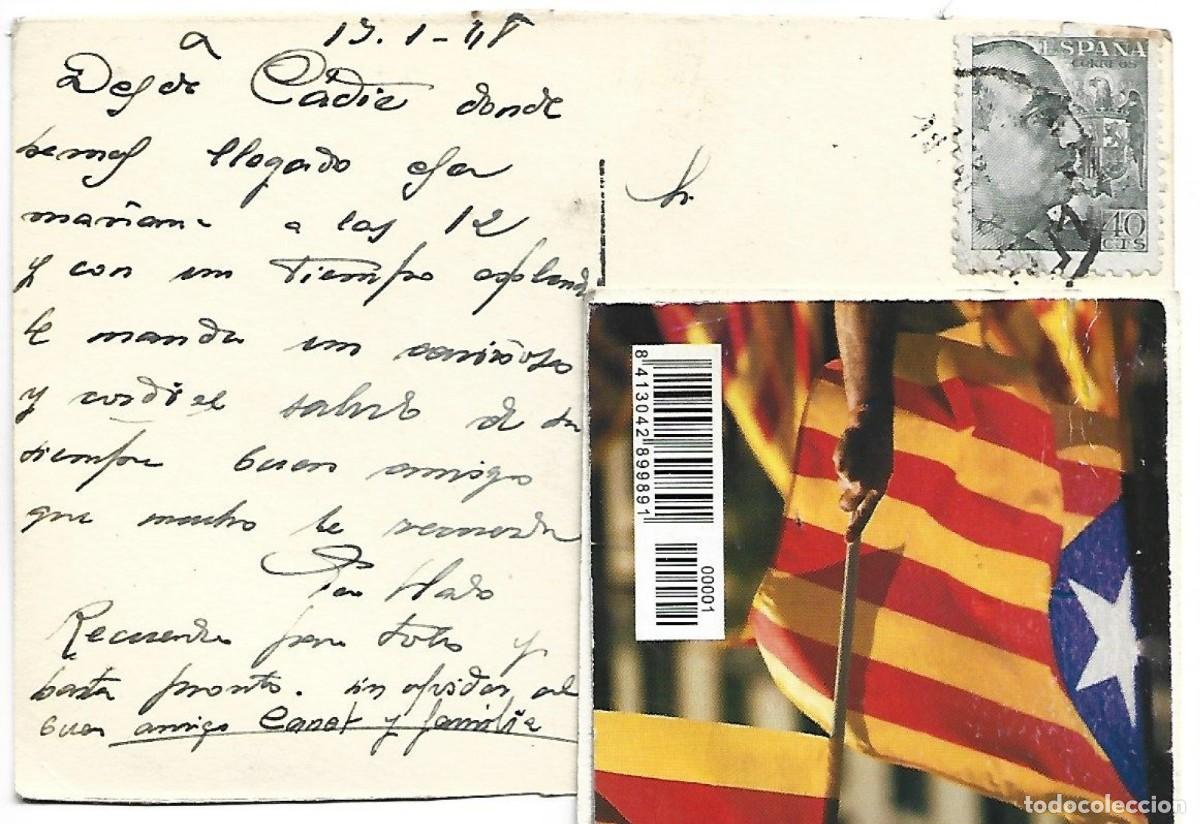 a 13.1-48
Desde Cádiz donde
hemos llegado esta
mañana a las 12
y con un tiempo
le manda un cariñoso
y cordial saludo de su
siempre buen amigo
que mucho le recuerda
Recuerdos para todos y
hasta pronto. sin olvidar al
buen amigo Canet y familia
Sr.
ESPAÑA
CORREOS
40
CTS
8 413042 899891
00001
todocoleccion